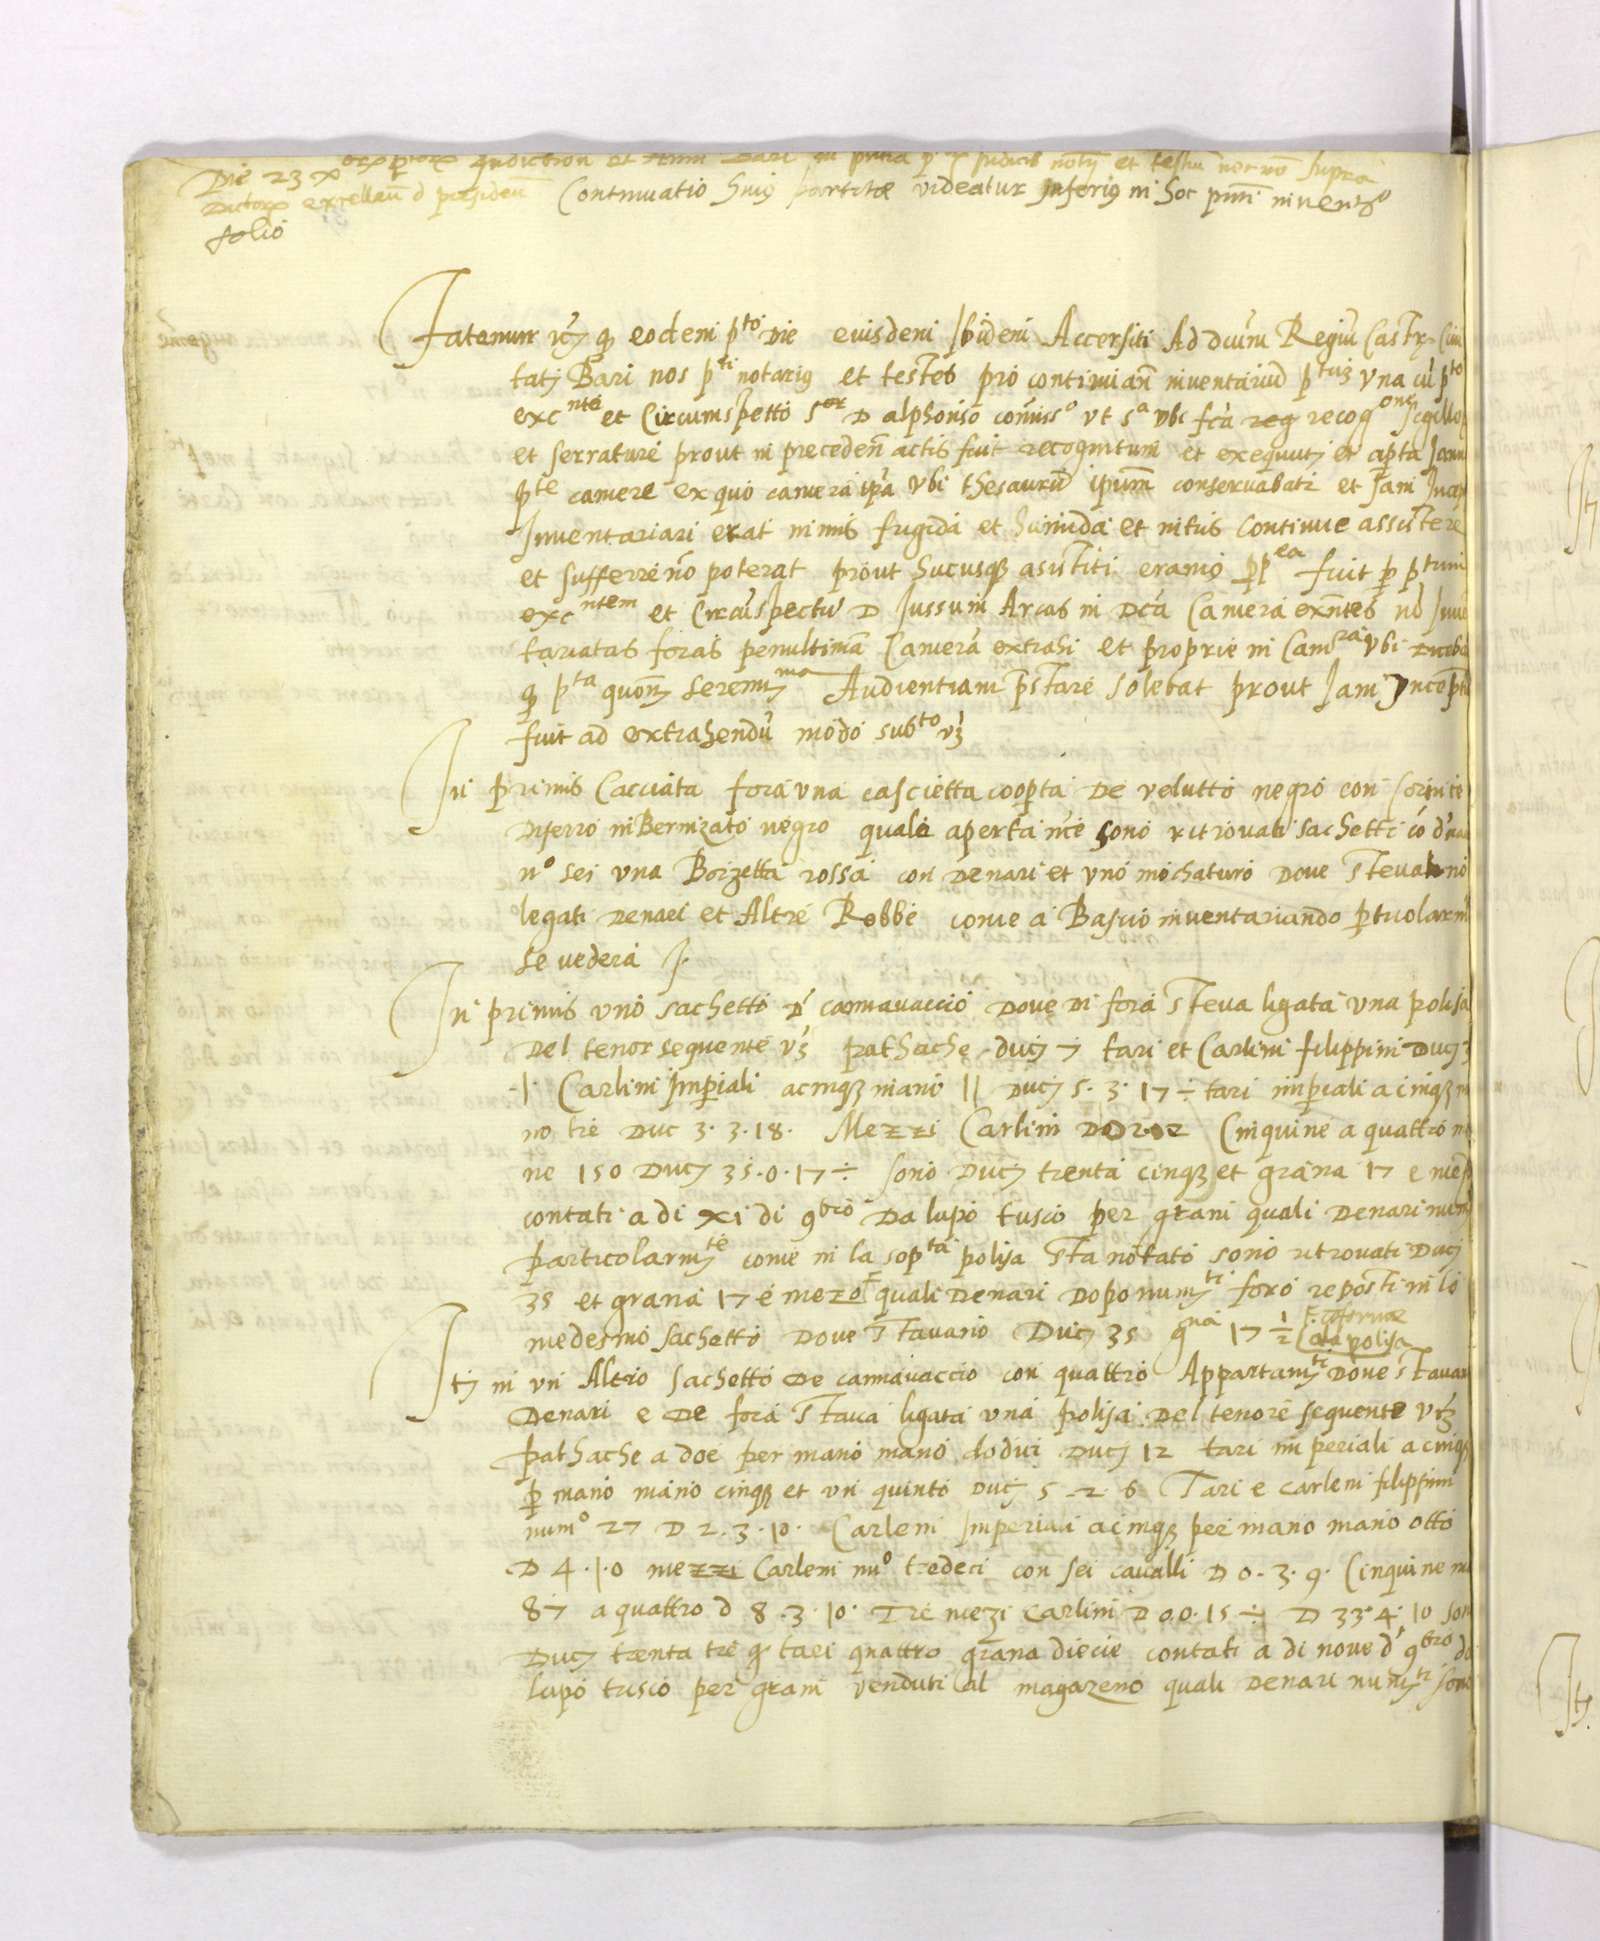 Die 23 X indiction et Anni Bari in et testiū necnō supra
Dictorᷣ excellen̄ d presiden̄ Continuatio huiꝯ partitæ videatur inferiꝯ in hoc pnt̄i invent.º
folio
Fatemur qꝫ eodem p.to Die eiusdem Ibidem Accersiti Ad dictum Regiū Castrꝫ Civi
tatis Bari nos p.ti notariꝯ et testes pro continuan̄ inventariū una cū p.to
exc.nte et Circumspetto S.or D alphonso comiss.o ut s.a ubi fc̄a reg recog.one sigillo
et serrature prout in preceden̄ actis fuit recognitum et exequutꝫ et apta Janua
p.te camere ex quo camera ip̄a ubi thesaurū ipsum conservabatr et Jam
Inventariari erat nimis frigida et humida et intus continue assistere
et sufferre nō poterat prout hucusqꝫ asistiti eramꝯ pp.ea fuit p p.tum
exc.ntem et Circūspectū D Jussum Arcas in Dc̄a Camera exñtes nō Inve
tariatas foras penultimā Camerā extrahi et proprie in Cam.ra ubi
p.ta quon̄ Seren.ma Audientiam p̄stare solebat prout Jam Incept
fuit ad extrahendū modo sub.to vꝫ
In primis Cacciata fora una cascietta coopta de velutto negro con Cornice
Diferro inBernizato negro quale aperta nce sono ritrovati sachetti cō
n.o sei una Borzetta rossa con denari et uno mochaturo dove stevano
legati denari et Altre Robbe come a Bascio inventariando
se vedera
In primis uno sachetto dˢ cannavaccio dove di fora steva ligata una polisa
del tenor sequente vꝫ pathache ducꝫ 7 tari et Carlini filippini Ducꝫ 3
·1· Carlini Imperiali acinqꝫ mano 11 Ducꝫ 5·3·17÷ tari imperiali a cinqꝫ m
no tre Duc 3·3·18· Mezzi Carlini Cinquine a quattro
ne 150 Ducꝫ 35·0·17÷ sono Ducꝫ trenta cinqꝫ et grana 17 e mezo
contati a di xi di 9bro da lupo tuscio per grani quali denari
particolarm.te come in la sop.ta polisa sta notato sono ritrovati Ducꝫ
35 et grana 17 e mezo quali denari dopo num.ti foro reposti in lo
medesmo sachetto dove stavano Ducꝫ 35 g.na 17 1/2 conforme
ala polisa
Itꝫ in un Altro sachetto de cannavaccio con quattro Appartam.ti dove stavan
denari e de fora stava ligata una polisa del tenore sequente vtꝫ
pathache a doe per mano mano dodici Ducꝫ 12 tari imperiali a cinqꝫ
p mano mano cinqꝫ et un quinto Ducꝫ 5·2·6 Tari e carleni filippini
num.o 27 D 2·3·10· Carleni Imperiali acinqꝫ per mano mano otto
D 4·1·0 mezzi Carleni nu.o tredeci con sei cavalli D 0·3·9· Cinquine nu
87 a quattro d 8·3·10· Tre mezi Carlini D 0.0.15÷ D 33·4·10 son
Ducꝫ trenta tre tari quattro grana diecie contati a di nove d 9bro da
lupo tuscio per grani venduti al magazeno quali denari num.ti sono